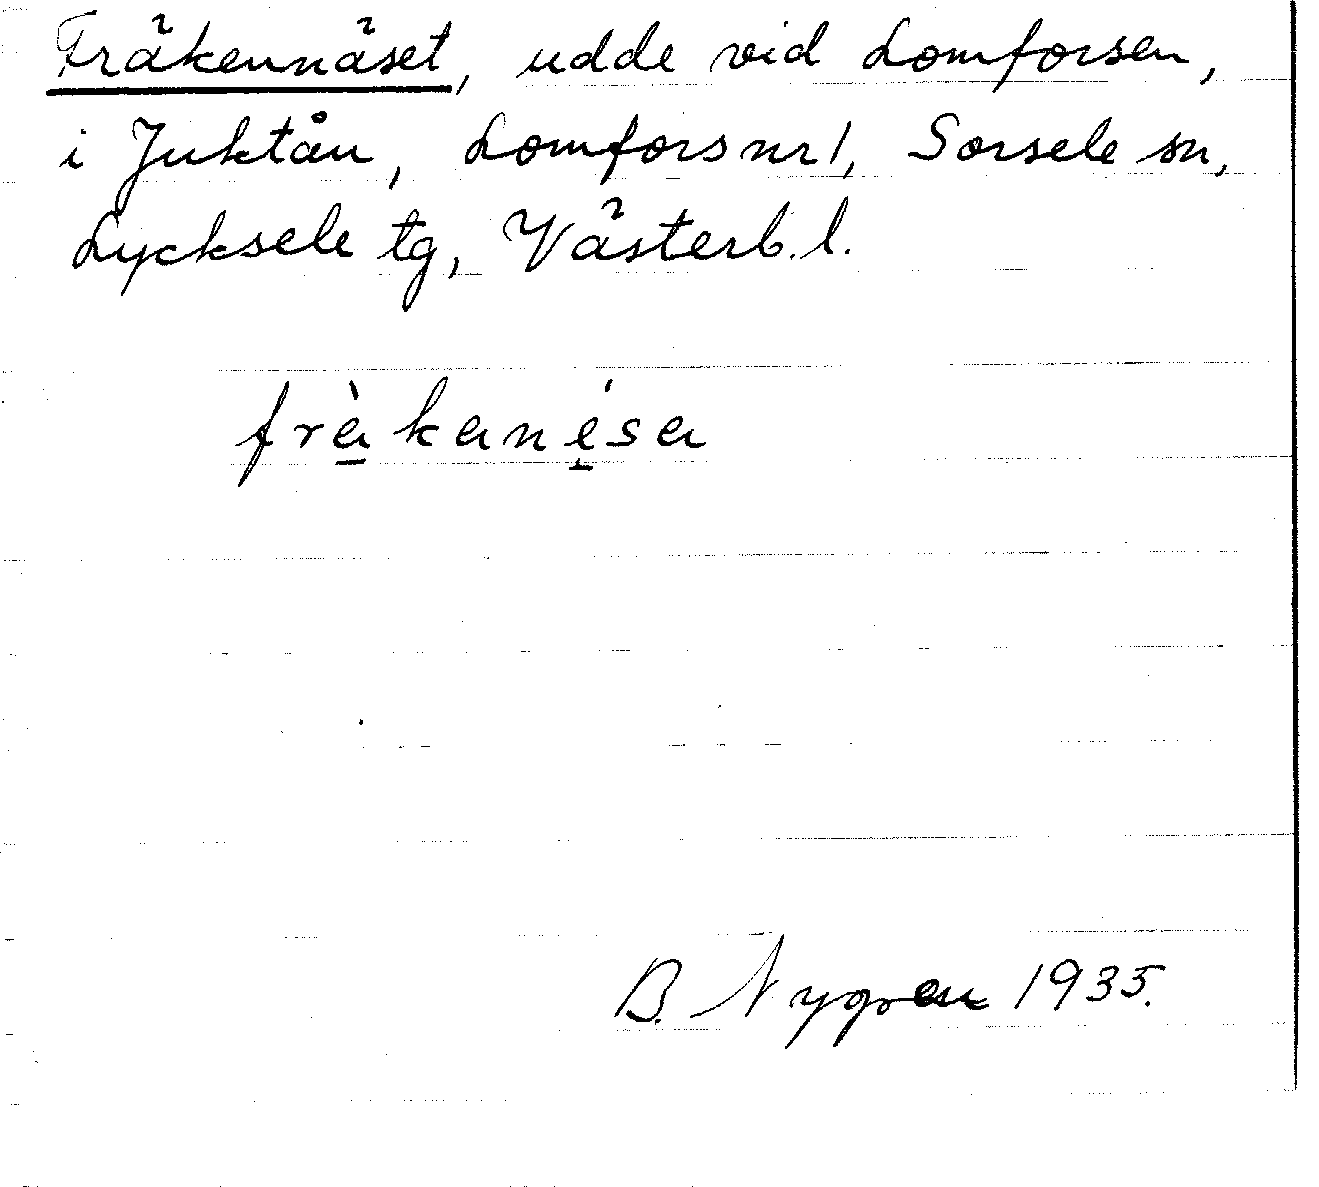 Fräkennäset, udde vid Lomforsen,
i Juktån, Lomfors nr 1, Sorsele sn,
Lycksele tg, Västerb. l.
fràkanésa
B. Nygren 1935.